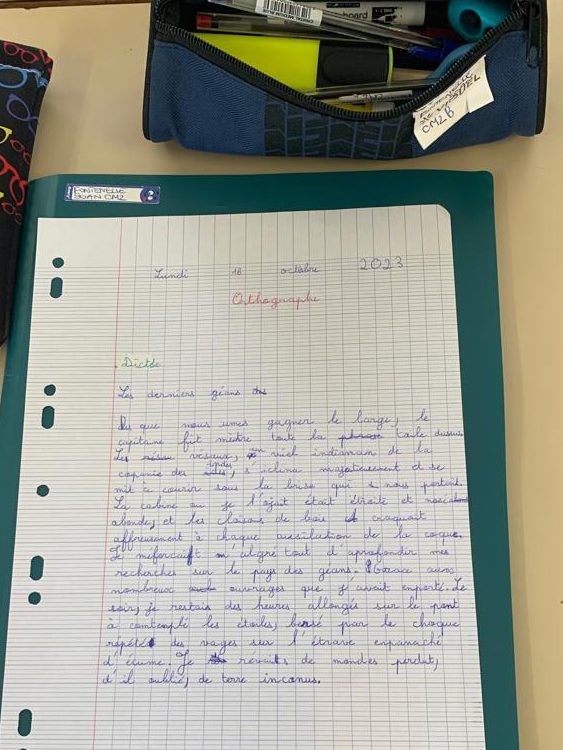 CM2B
FONTENELLE
CM2
Lundi 18 octobre 2023
Orthographe
Dictée
Les derniers géans
Dès que nous umes gagner le large, le
capitaine fit metre toute la taile dusus
Les vesaux, un vieil indianam de la
copanie des indes, s'inclina majatieusement et se
mit à courir sous la brise que nous portait.
La cabine ou je l'ojait était étroite et
abonde, et les cloisons de bois craquait
affreusement à chaque ausilation de la coque.
Je meforcait m'algré tout d'aprofondir mes
recherches sur le pays des géans. Grace aux
nombreux ouvrages que j'avait enporté. Le
soir, je restais des heures allongés sur le pont
à comtemplé les étoiles, bersé par le choque
répété des vages sur l'étrave enpanaché
d'écume. Je revaits de mondes perdut,
d'il oublié, de terre inconus.